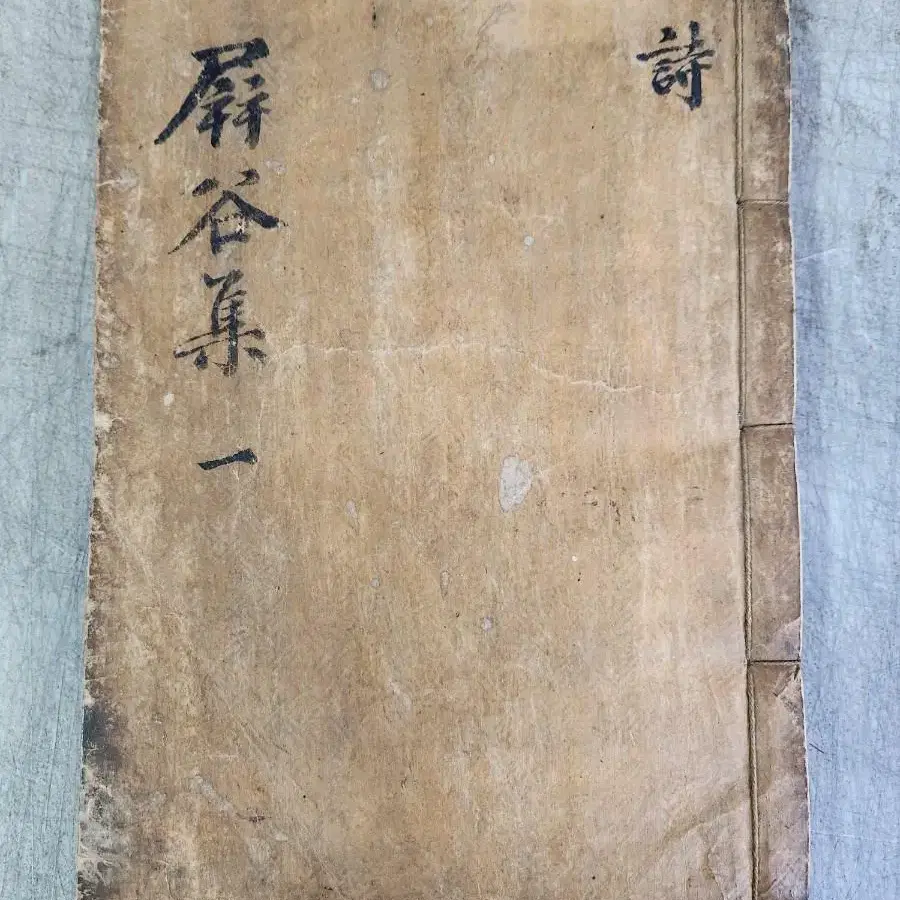 詩
屛谷集 一